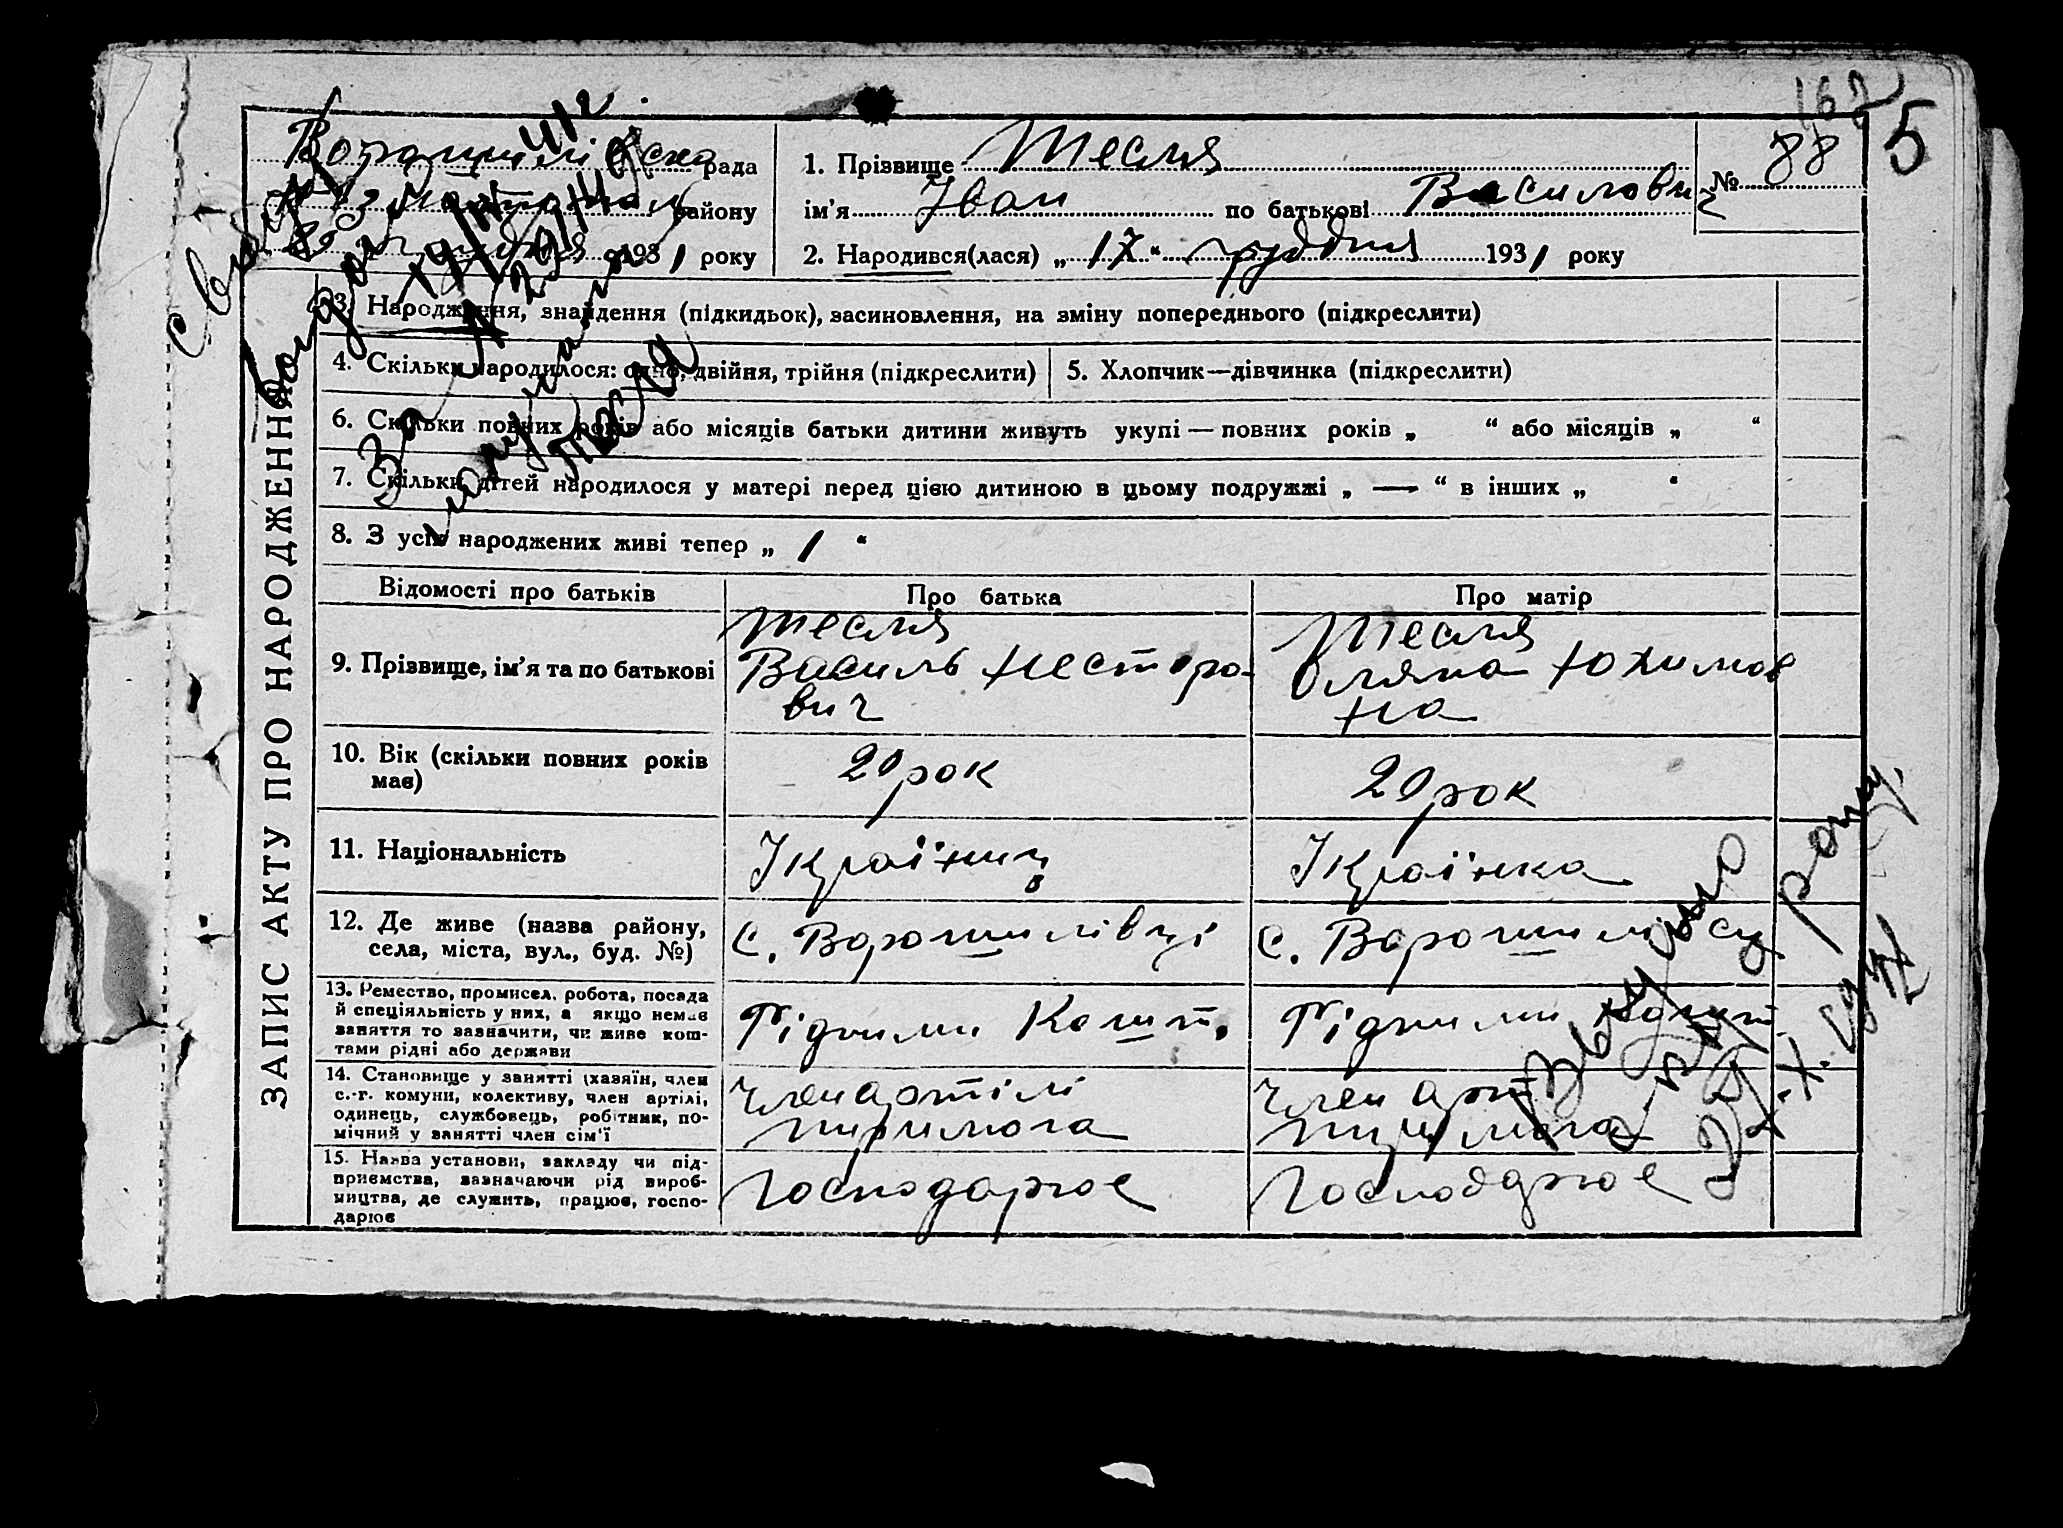 162
5
Ворошилівска рада
району
23 грудня 1931 року
1. Прізвище Тесля
ім'я Іван по батькові Василович
№ 88
2. Народився(лася) „17“ грудня 1931 року
ЗАПИС АКТУ ПРО НАРОДЖЕННЯ
3. Народження, знайдення (підкидьок), засиновлення, на зміну попереднього (підкреслити)
4. Скільки народилося: одно, двійня, трійня (підкреслити)
5. Хлопчик—дівчинка (підкреслити)
6. Скільки повних років або місяців батьки дитини живуть укупі — повних років „ “ або місяців „ “
7. Скільки дітей народилося у матері перед цією дитиною в цьому подружжі „ — “ в інших „ “
8. З усіх народжених живі тепер „ 1 “
Відомості про батьків
Про батька
Про матір
9. Прізвище, ім'я та по батькові
Тесля
Василь Несторо-
вич
Тесля
Оляна Юхимов
на
10. Вік (скільки повних років
має)
20 рок
20 рок
11. Національність
Українець
Українка
12. Де живе (назва району,
села, міста, вул., буд. №)
с. Ворошилівці
с. Ворошилівці
13. Ремество, промисел, робота, посада
й спеціяльність у них, а якщо немає
заняття то зазначити, чи живе кош-
тами рідні або держави
Рідними Кошт.
Рідними Кошт.
14. Становище у занятті (хазяїн, член
с.-г. комуни, колективу, член артілі,
одинець, службовець, робітник, по-
мічний у занятті член сім'ї
член артілі
член арт
15. Назва установи, закладу чи під-
приємства, зазначаючи рід вироб-
ництва, де служить, працює, госпо-
дарює
Господарює
Господарює
Тесля
року.